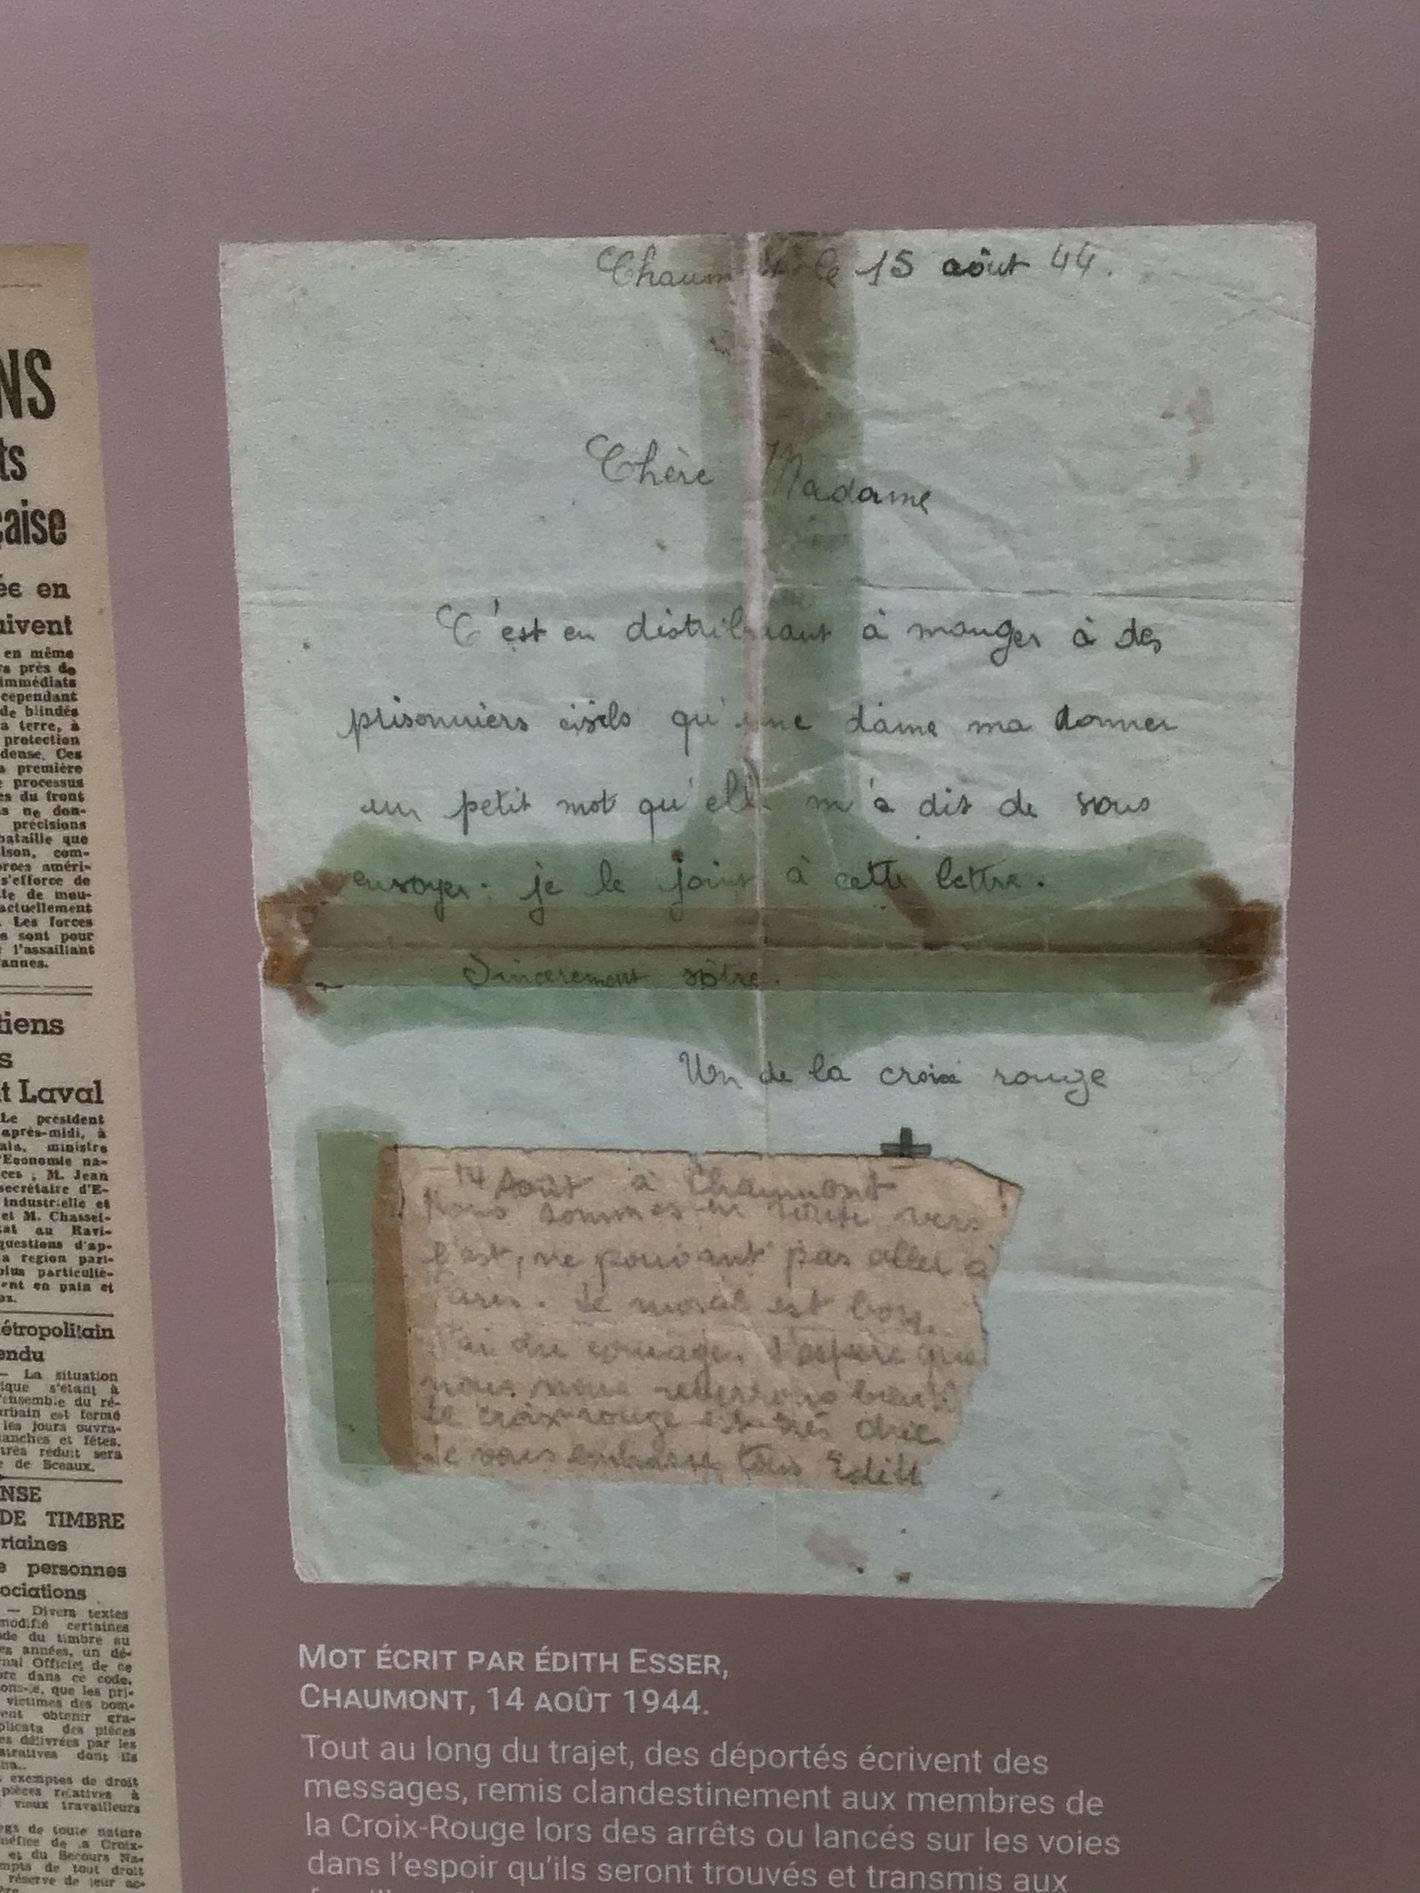 NS
ts
çaise
ée en
uivent
en même
rs près de
immédiats
cependant
de blindés
a terre, à
protection
dense. Ces
a première
processus
es du front
s ne don-
précisions
bataille que
lson, com-
orces améri-
s'efforce de
te de mou-
actuellement
. Les forces
s sont pour
l'assaillant
annes.
tiens
s
t Laval
Le président
après-midi, à
ala, ministre
l'Economie na-
ces ; M. Jean
secrétaire d'E-
industrielle et
et M. Chassei-
at au Ravi-
questions d'ap-
a région pari-
plus particuliè-
ent en pain et
ox.
étropolitain
endu
— La situation
ique s'étant à
l'ensemble du ré-
urbain est fermé
les jours ouvra-
anches et fêtes.
très réduit sera
e de Sceaux.
NSE
DE TIMBRE
rtaines
e personnes
ociations
— Divers textes
modifié certaines
de du timbre au
es années, un dé-
nal Officiel de ce
re dans ce code.
que les pri-
victimes des bom-
vent obtenir gra-
plicata des pièces
es délivrées par les
stratives dont ils
exemptes de droit
pièces relatives à
vieux travailleurs
egs de toute nature
néfice de la Croix-
et du Secours Na-
mpts de tout droit
réserve de leur ac-
Chaum le 15 août 44.
Chère Madame
C'est en distribuant à manger à des
prisonniers civils qu'une dame ma donner
un petit mot qu'elle m'a dit de vous
envoyer; je le joins à cette lettre.
Sincèrement vôtre.
Un de la croix rouge
14 Août à Chaumont
Nous sommes en route vers
l'est, ne pouvant pas aller à
Paris. Le moral est bon,
J'ai du courage. J'espère que
nous nous reverrons bient
La croix-rouge est très chic
Je vous embrasse tous Edith
MOT ÉCRIT PAR ÉDITH ESSER,
CHAUMONT, 14 AOÛT 1944.
Tout au long du trajet, des déportés écrivent des
messages, remis clandestinement aux membres de
la Croix-Rouge lors des arrêts ou lancés sur les voies
dans l'espoir qu'ils seront trouvés et transmis aux